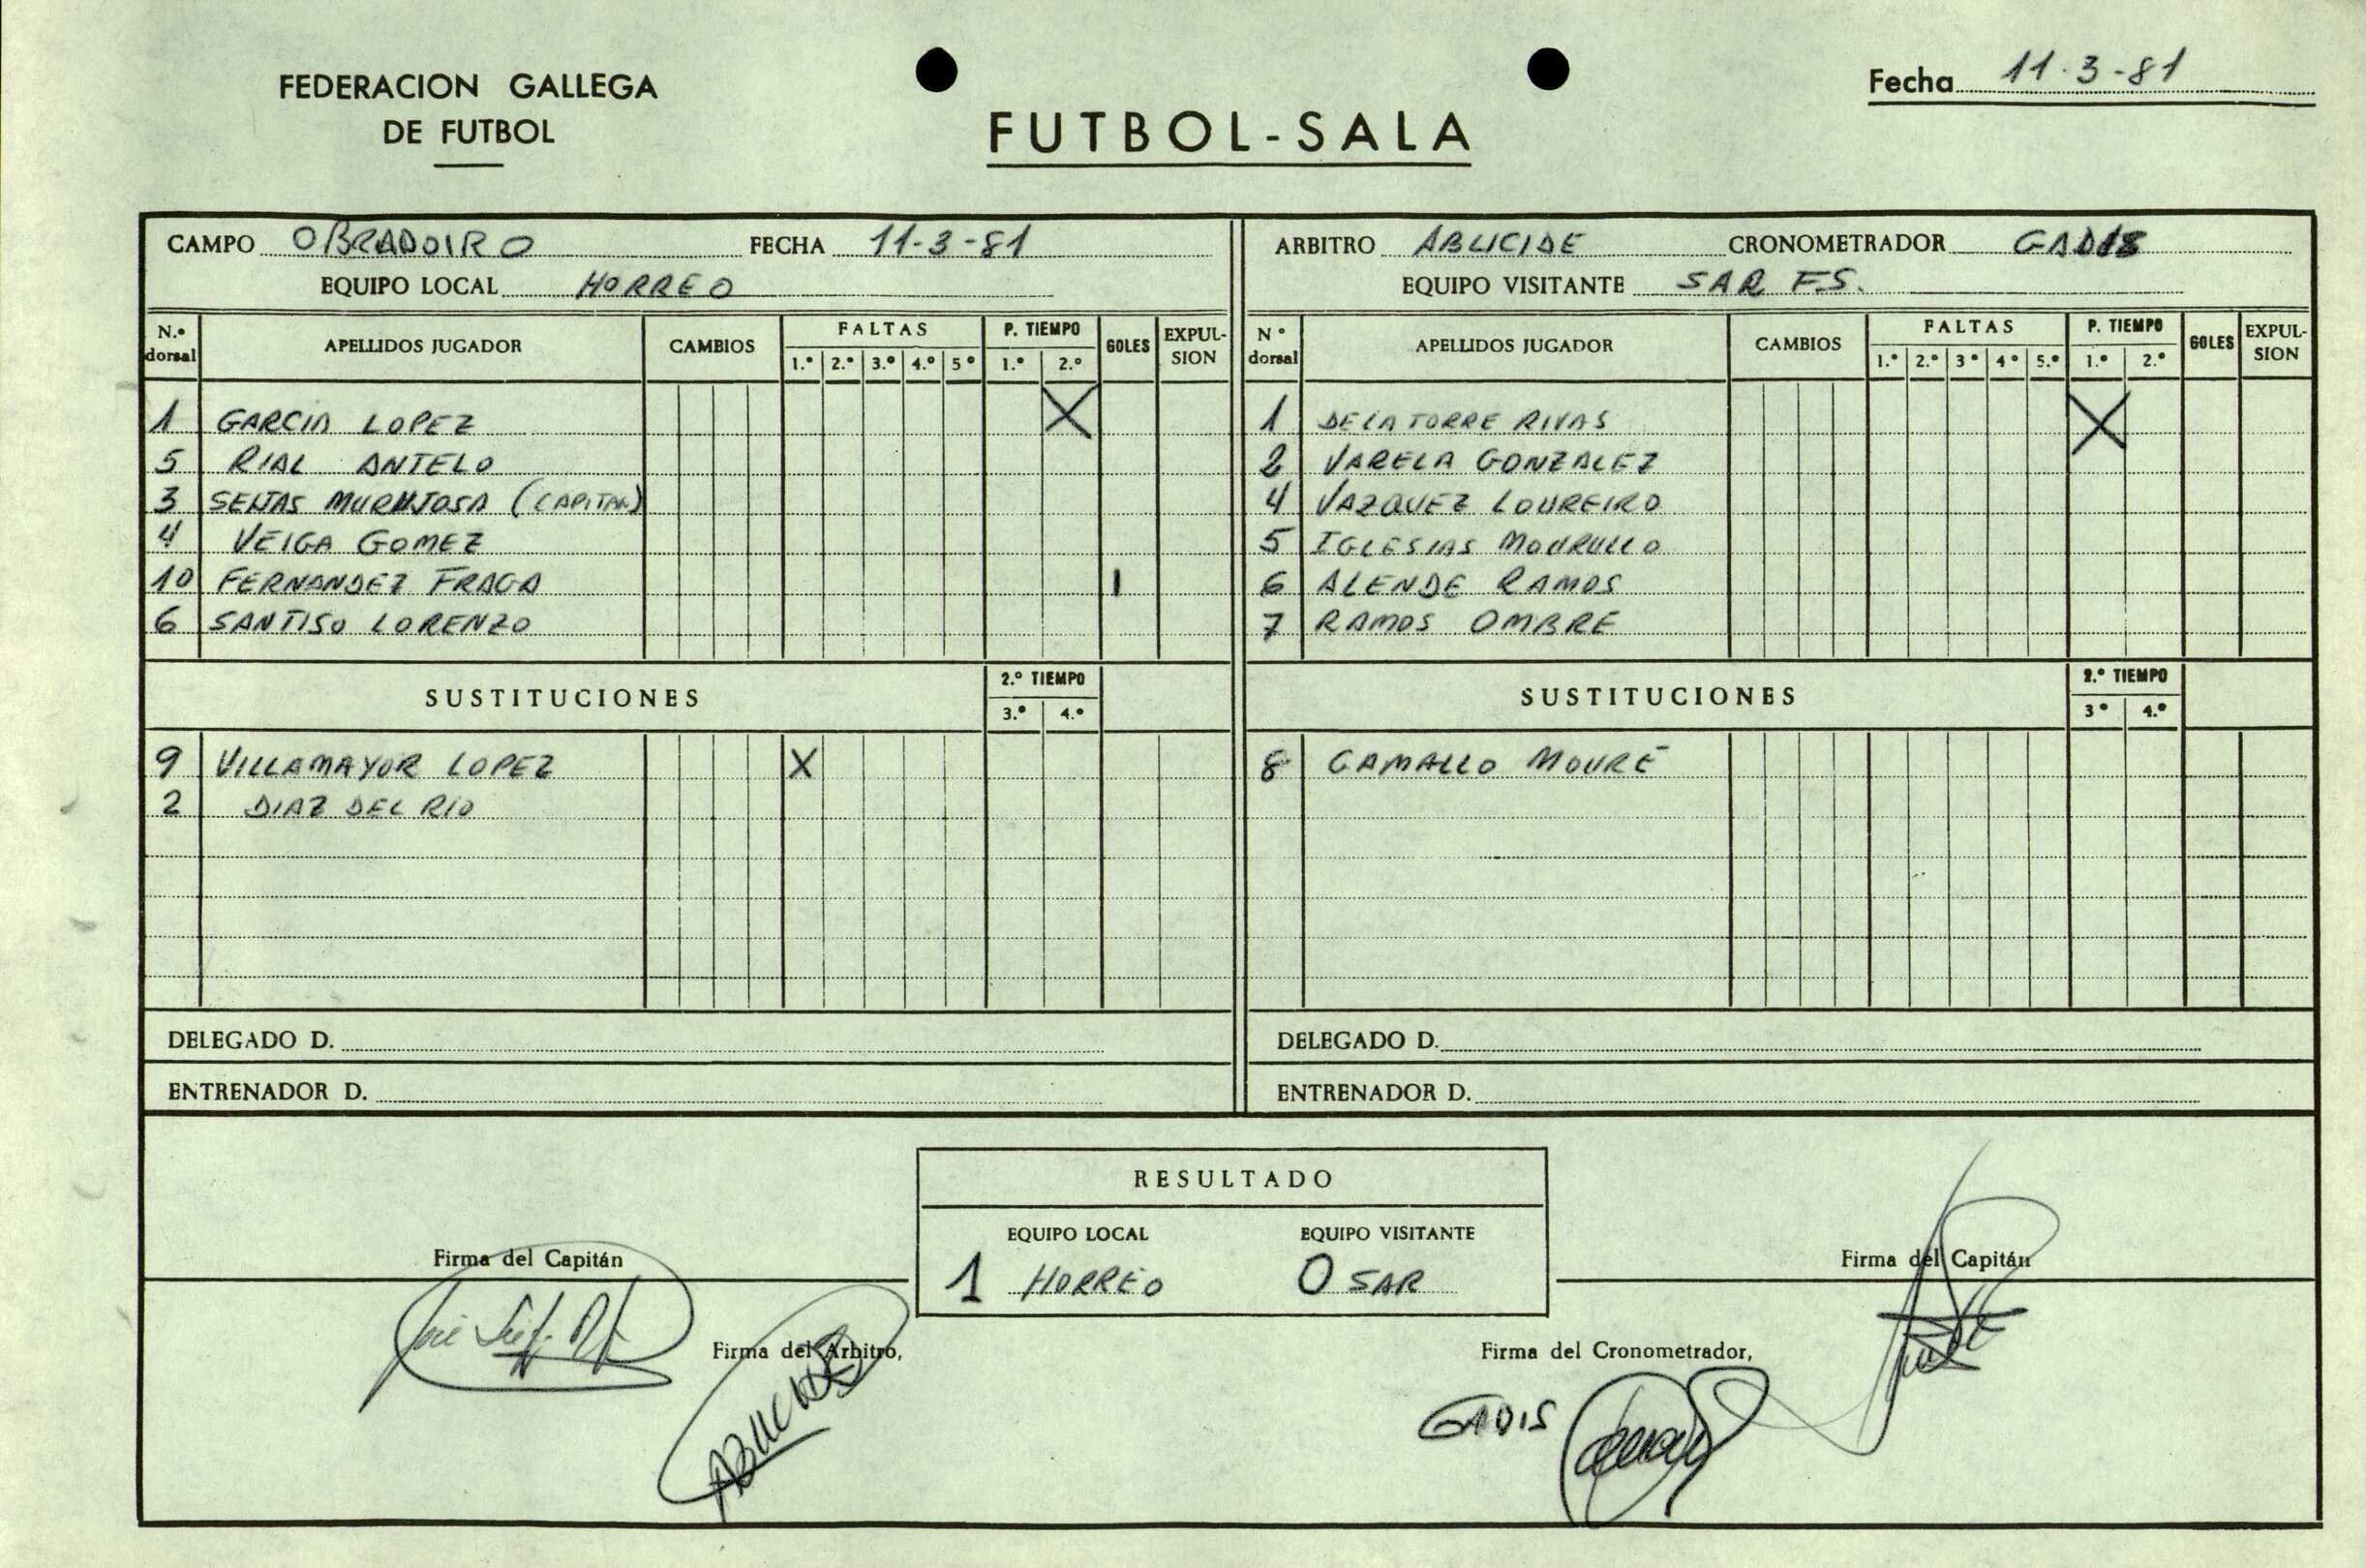 FEDERACION GALLEGA
DE FUTBOL
FUTBOL-SALA
Fecha 11-3-81
CAMPO OBRADOIRO FECHA 11-3-81
EQUIPO LOCAL HORREO
N.º dorsal APELLIDOS JUGADOR CAMBIOS FALTAS 1.º 2.º 3.º 4.º 5º P. TIEMPO 1.º 2.º GOLES EXPULSION
1 GARCIA LOPEZ X
5 RIAL ANTELO
3 SEIJAS (CAPITAN)
4 VEIGA GOMEZ
10 FERNANDEZ FRAGA 1
6 SANTISO LORENZO
SUSTITUCIONES 2.º TIEMPO 3.º 4.º
9 VILLAMAYOR LOPEZ X
2 DIAZ DEL RIO
DELEGADO D.
ENTRENADOR D.
ARBITRO ABLICIDE CRONOMETRADOR GADIS
EQUIPO VISITANTE SAR F.S.
Nº dorsal APELLIDOS JUGADOR CAMBIOS FALTAS 1.º 2.º 3º 4º 5.º P. TIEMPO 1.º 2.º GOLES EXPULSION
1 DE LA TORRE RIVAS X
2 VARELA GONZALEZ
4 VAZQUEZ LOUREIRO
5 IGLESIAS MOURULLO
6 ALENDE RAMOS
7 RAMOS OMBRE
SUSTITUCIONES 2.º TIEMPO 3º 4.º
8 CAMALLO MOURE
DELEGADO D.
ENTRENADOR D.
RESULTADO
EQUIPO LOCAL EQUIPO VISITANTE
1 HORREO 0 SAR
Firma del Capitán
Firma del Capitán
Firma del Arbitro,
Firma del Cronometrador,
GADIS